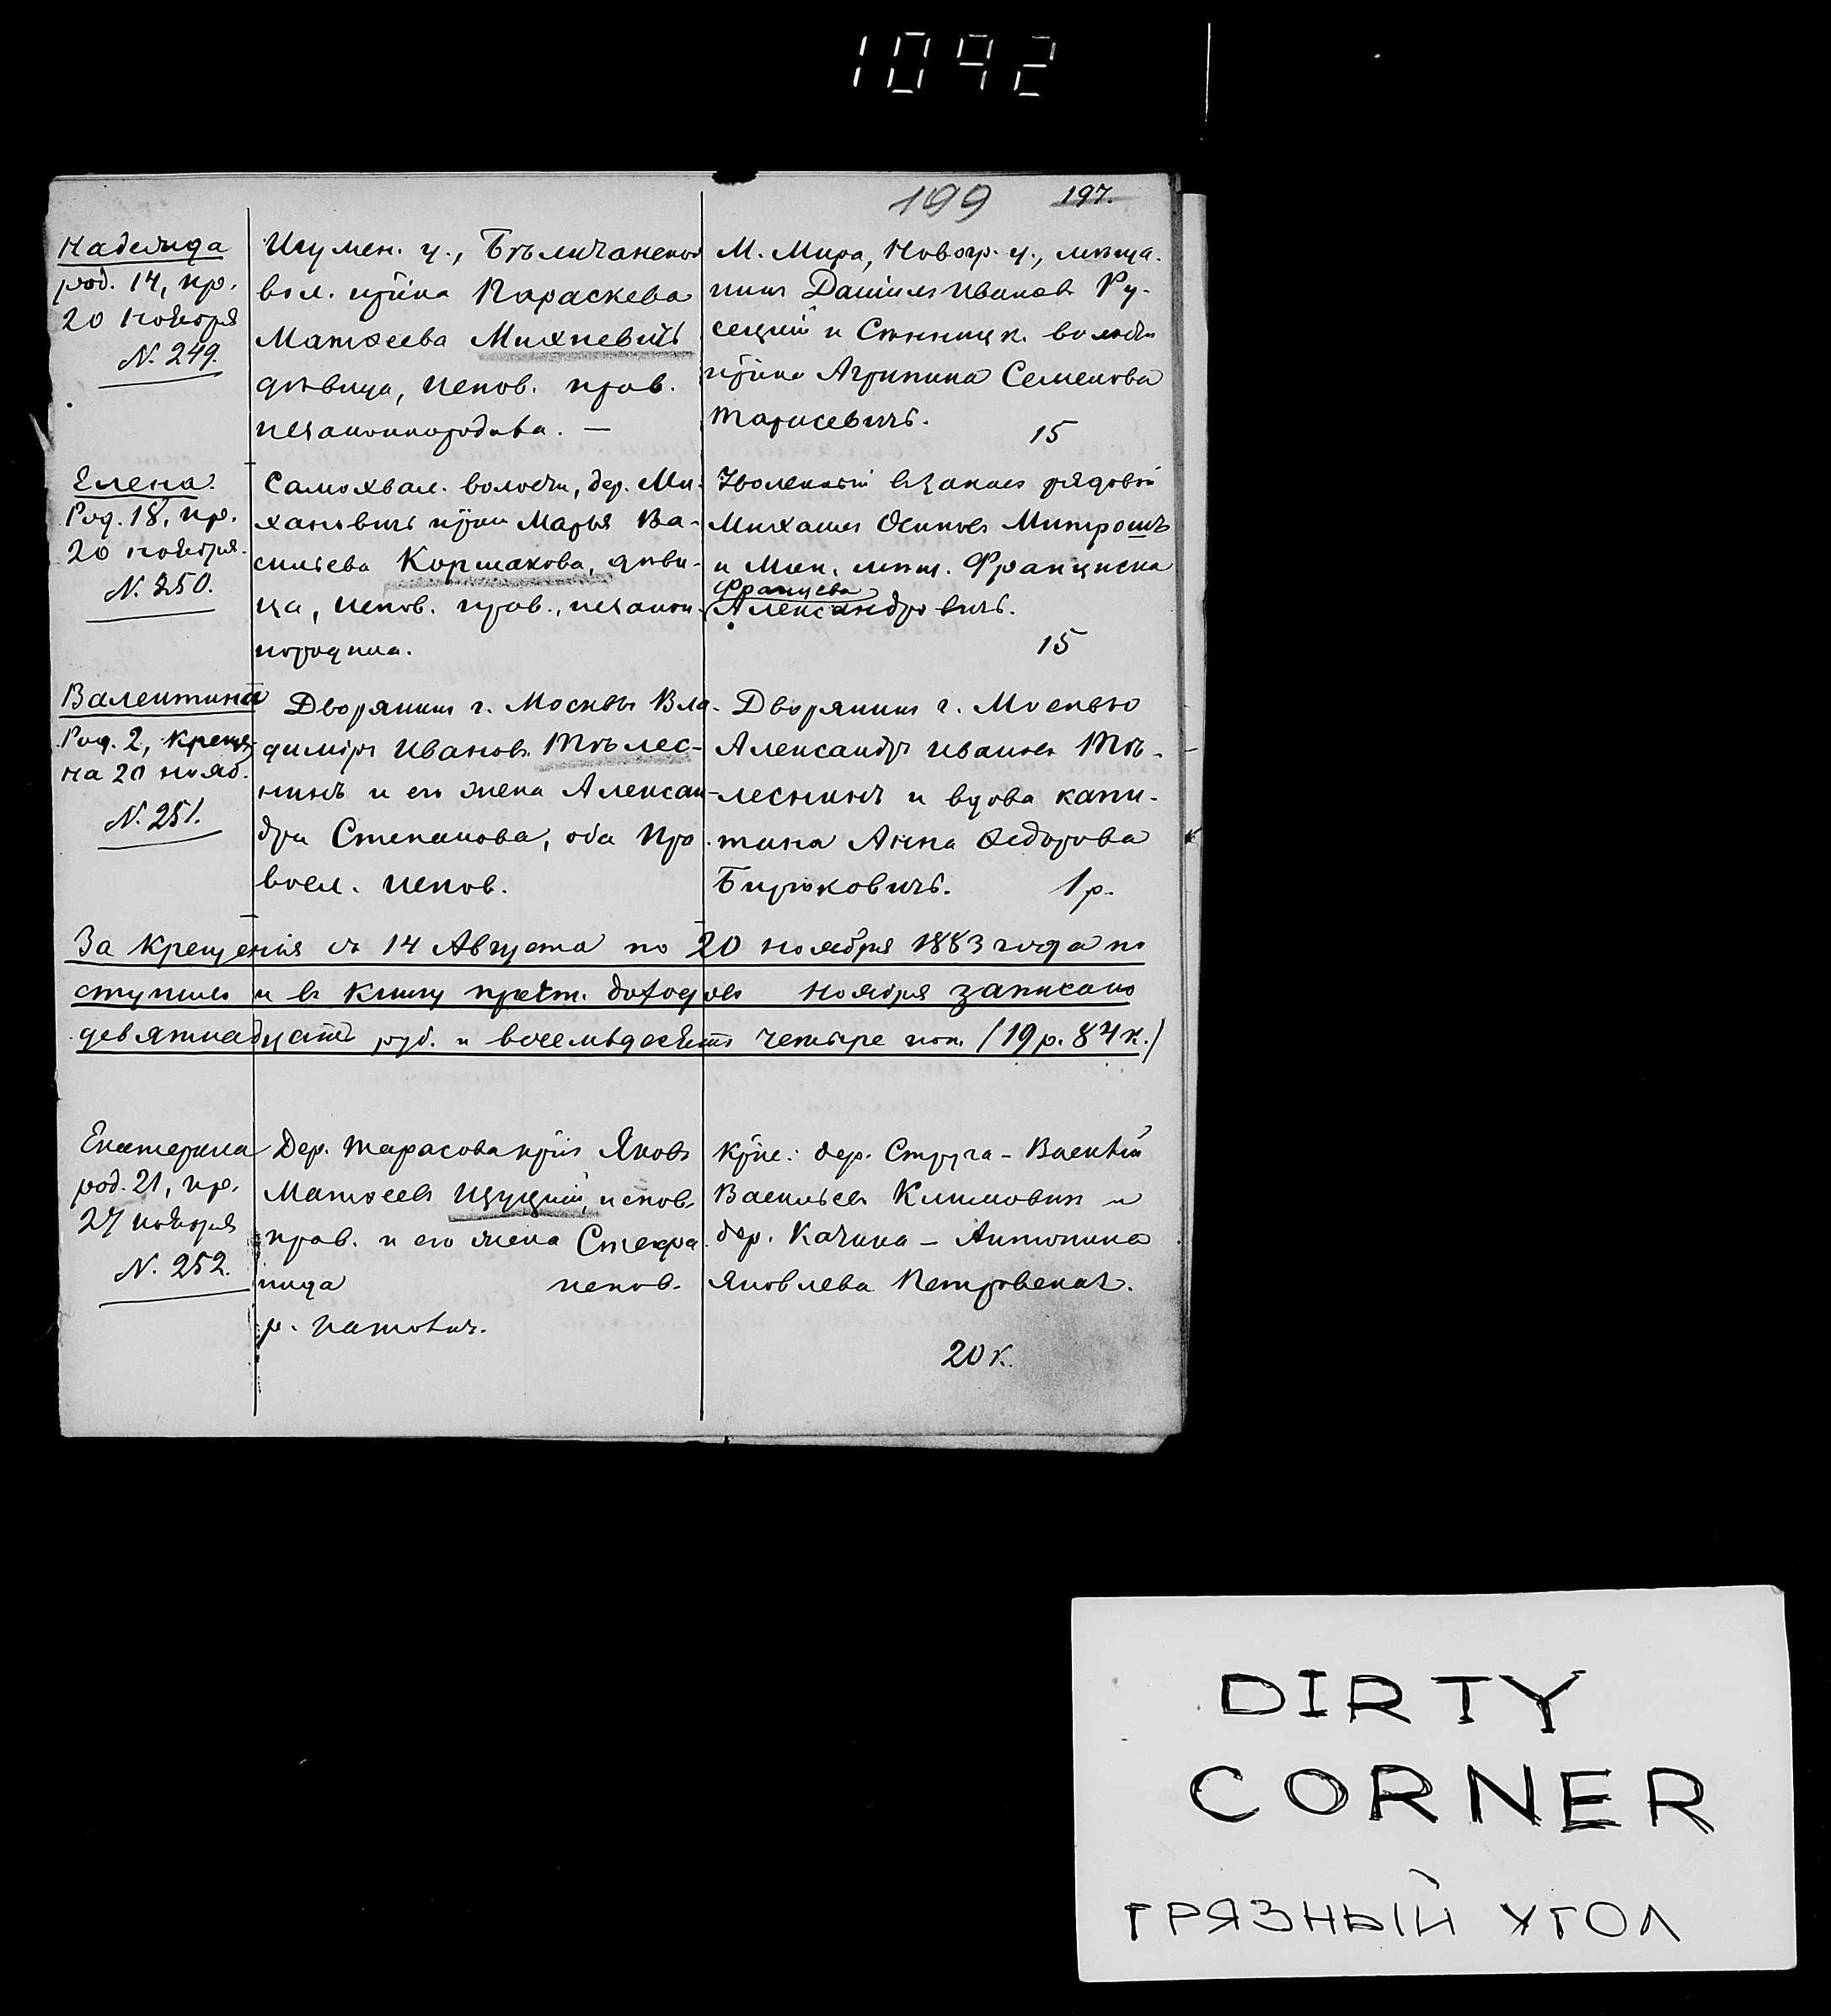 1092
199 197.
Надежда
род. 14, кр.
20 ноября
N. 249.
Игумен. у., Бѣличанской
вол. кр̃нка Параскева
Матѳеева Михневичъ
дѣвица, испов. прав.
незаконнорожда. —
М. Мира, Новогр. у., мѣща.
нинъ Даніилъ Ивановъ Ру-
сецкій и Сѣнницк. волости
кр̃нка Агрипина Семенова
Тарасевичъ.
15
Елена.
Род. 18, кр.
20 ноября.
N. 250.
Самохвал. волости, дер. Ми-
хановичъ кр̃нка Марья Ва-
сильева Коршакова, дѣви-
ца, испов. прав., незакон-
норожден.
Уволенный въ запасъ рядовой
Михаилъ Осиповъ Митрошъ
и Мин. мѣщ. Франциска
Францева
Александровичъ.
15
Валентина
Род. 2, креще-
на 20 нояб.
N. 251.
Дворянинъ г. Москвы Вла-
диміръ Ивановъ Тѣлес-
нинъ и его жена Алексан-
дра Степанова, оба пра
восл. испов.
Дворянинъ г. Москвы
Александръ Ивановъ Тѣ-
леснинъ и вдова капи-
тана Анна Ѳедорова
Бирюковичъ. 1 р.
За крещенія съ 14 Августа по 20 ноября 1883 года по
ступило и въ книгу доходовъ ноября записано
девятнадцать руб. и восемьдесятъ четыре коп. (19 р. 84 к.)
Екатерина
род. 21, кр.
27 ноября
N. 252.
Дер. Тарасова кр̃нъ Яковъ
Матѳеевъ Щуцкій, испов.
прав. и его жена Стефа
нида испов.
р. католич.
Кр̃не: дер. Струга - Василій
Васильевъ Климовичъ и
дер. Качина - Антонина
Яковлева Петровская.
20 к.
DIRTY
CORNER
ГРЯЗНЫЙ УГОЛ